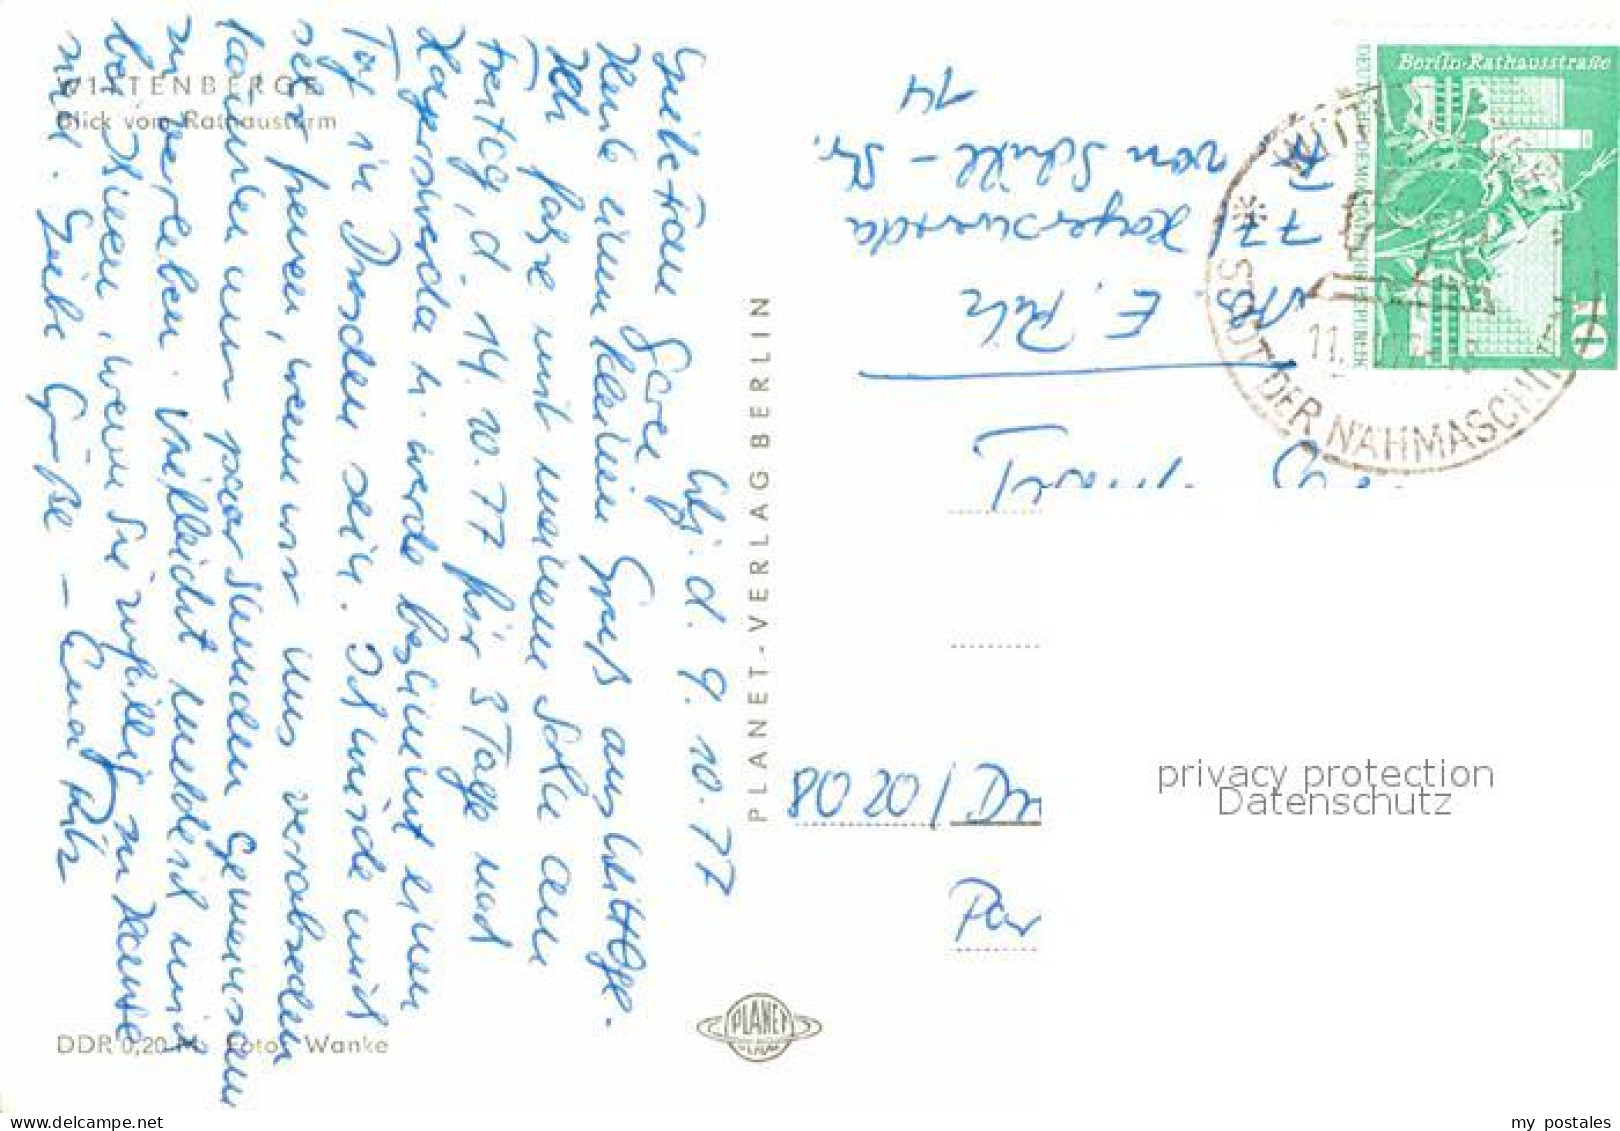 WITTENBERGE
Blick vom Rathausturm
Wbg. d. 9. 10. 77
Liebe Frau
Heute einen kleinen Gruß aus Wittbge.
Ich fahre mit meinem Sohn am
Freitag, d. 14. 10. 77 für 3 Tage nach
Hoyerswerda u. werde bestimmt einen
Tag in Dresden sein. Ich würde mich
sehr freuen, wenn wir uns verabreden
könnten um paar Stunden gemeinsam
zu verleben. Vielleicht melden Sie sich mal
bei Ihnen, wenn Sie zufällig zu Hause
sind. Liebe Grüße –
DDR 0,20 M Foto: Wanke
PLANET-VERLAG BERLIN
PLANET
E. Pilz
77 Hoyerswerda
von Schill-Str.
14
Berlin-Rathausstraße
DEUTSCHE DEMOKRATISCHE REPUBLIK
10
STADT DER NÄHMASCHIN
11.
02 08
privacy protection
Datenschutz
my postales